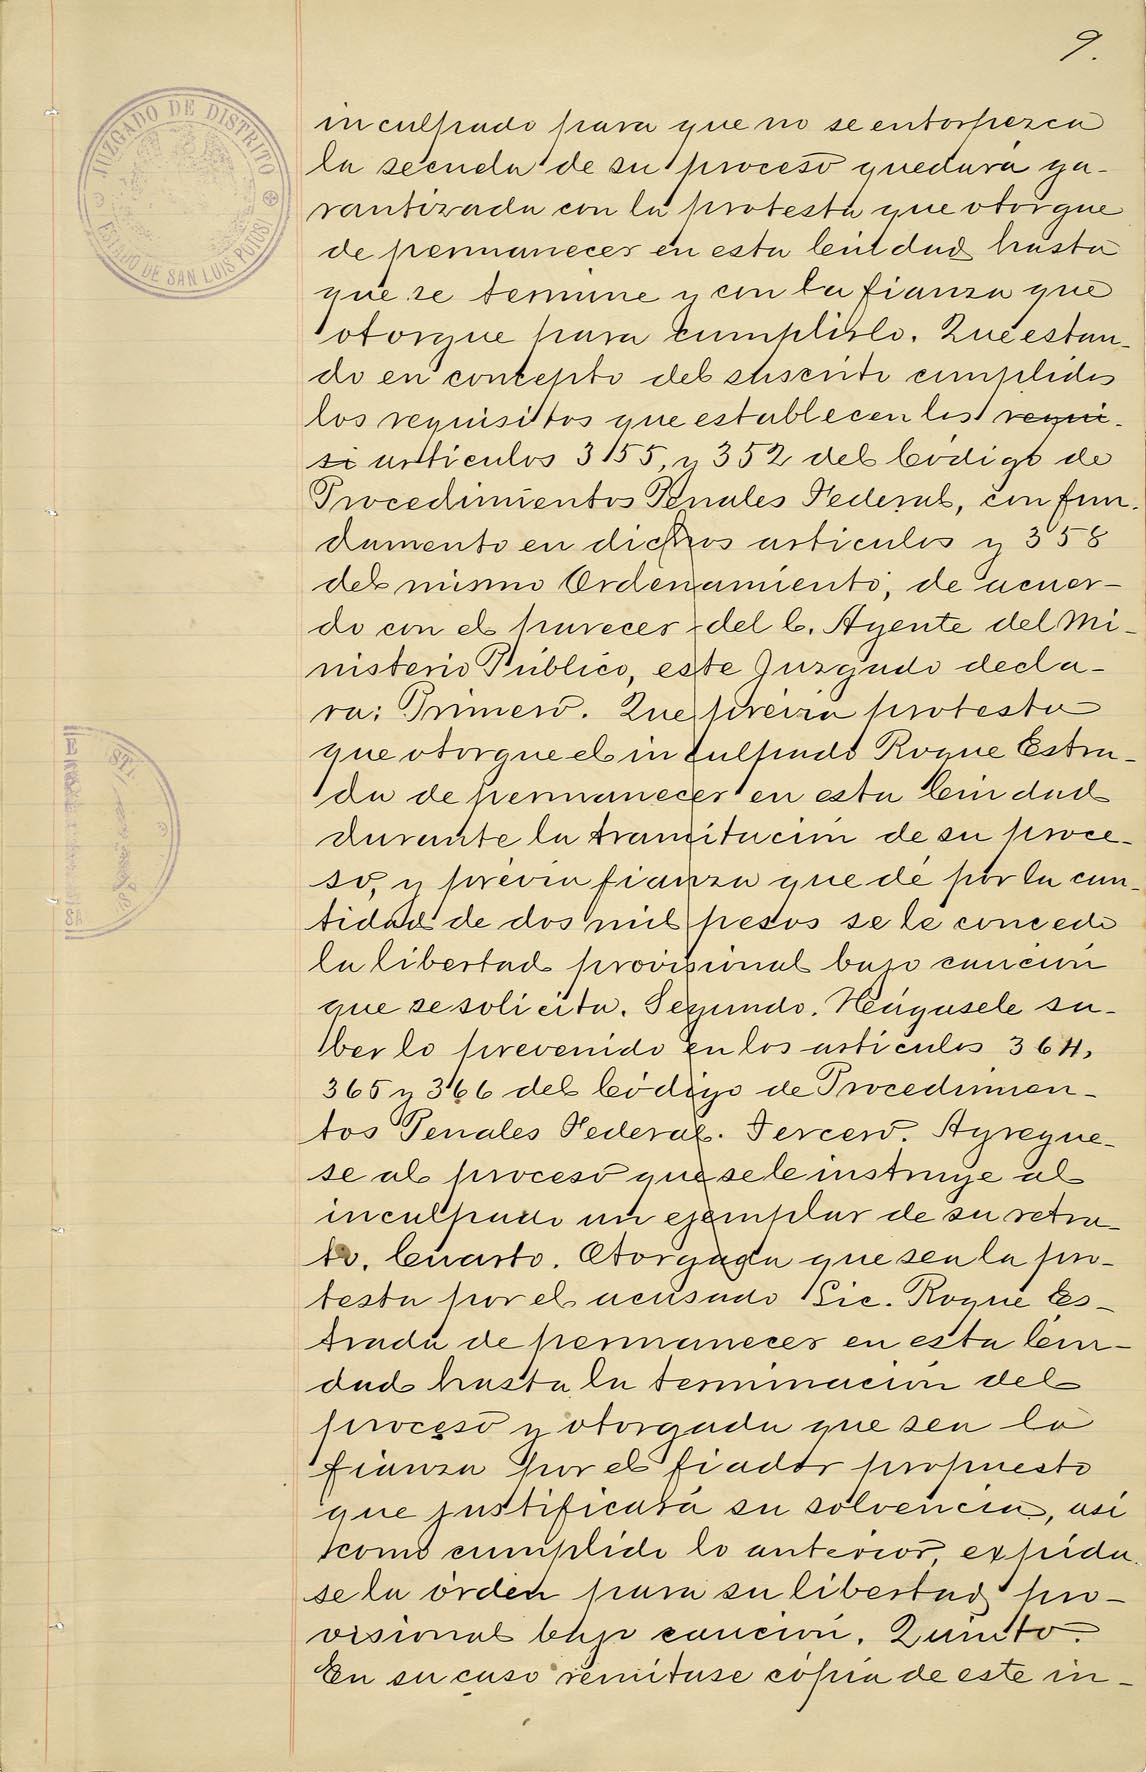 9.
JUZGADO DE DISTRITO
ESTADO DE SAN LUIS POTOSI
inculpado para que no se entorpezca
la secuela de su proceso quedará ga-
rantizada con la protesta que otorgue
de permanecer en esta Ciudad hasta
que se termine y con la fianza que
otorgue para cumplirlo. Que estan-
do en concepto del suscrito cumplidos
los requisitos que establecen los requi-
si articulos 3155, y 352 del Código de
Procedimientos Penales Federal, con fun-
damento en dichos articulos y 358
del mismo Ordenamiento, de acuer-
do con el parecer del C. Agente del Mi-
nisterio Público, este Juzgado decla-
ra: Primero. Que prévia protesta
que otorgue el inculpado Roque Estra-
da de permanecer en esta Ciudad
durante la tramitación de su proce-
so, y prévia fianza que dé por la can-
tidad de dos mil pesos se le concede
la libertad provisional bajo caución
que se solicita. Segundo. Hágasele sa-
ber lo prevenido en los artículos 364,
365 y 366 del Código de Procedimien-
tos Penales Federal. Tercero. Agregue-
se al proceso que se le instruye al
inculpado un ejemplar de su retra-
to. Cuarto. Otorgada que sea la pro-
testa por el acusado Lic. Roque Es-
trada de permanecer en esta Ciu-
dad hasta la terminación del
proceso y otorgada que sea la
fianza por el fiador propuesto
que justificará su solvencia, asi
como cumplido lo anterior, expída-
se la órden para su libertad pro-
visional bajo caución. Quinto.
En su caso remitase cópia de este in-